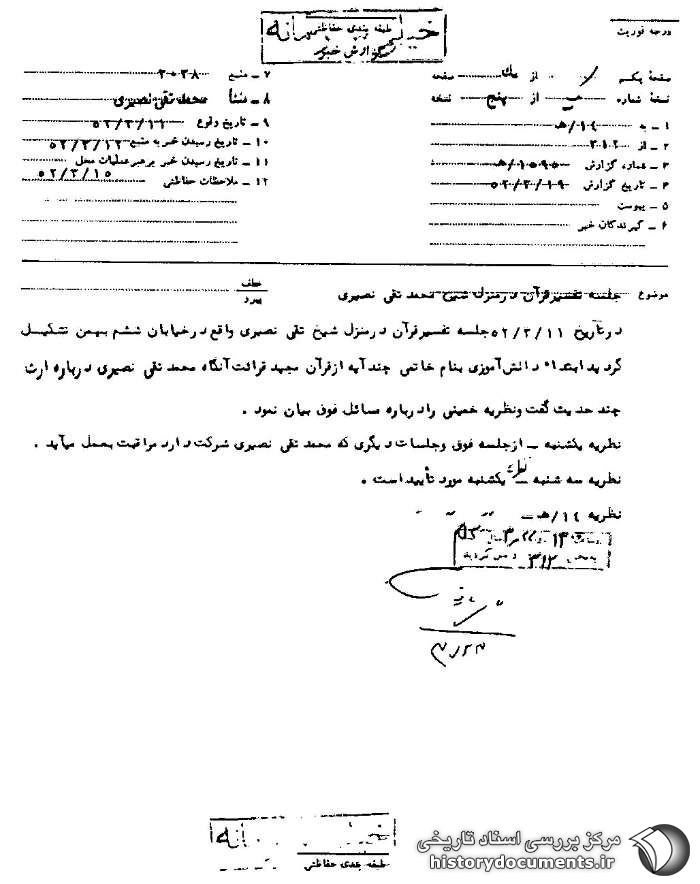 درجه فوریت
طبقه بندی حفاظتی
گزارش خبر
صفحه یکم از یک صفحه
نسخه شماره از پنج نسخه
۱ ـ به ۱۴/هـ
۲ ـ از ۳۱۲
۳ ـ شماره گزارش
۴ ـ تاریخ گزارش ۵۲/۳/۱۹
۵ ـ پیوست
۶ ـ گیرندگان خبر
۷ ـ منبع ۳۰۳۸
۸ ـ منشأ محمد تقی نصیری
۹ ـ تاریخ وقوع ۵۲/۳/۱۱
۱۰ ـ تاریخ رسیدن خبر به منبع ۵۲/۳/۱۲
۱۱ ـ تاریخ رسیدن خبر برهبر عملیات محل ۵۲/۳/۱۵
۱۲ ـ ملاحظات حفاظتی
موضوع جلسه تفسیر قرآن در منزل شیخ محمد تقی نصیری
عطف
پیرو
در تاریخ ۵۲/۳/۱۱ جلسه تفسیر قرآن در منزل شیخ تقی نصیری واقع در خیابان ششم بهمن تشکیل
گردید ابتداء دانش آموزی بنام خاتمی چند آیه از قرآن مجید قرائت آنگاه محمد تقی نصیری درباره ارث
چند حدیث گفت ونظریه خمینی را درباره مسائل فوق بیان نمود .
نظریه یکشنبه ـ ازجلسه فوق وجلسات دیگری که محمد تقی نصیری شرکت دارد مراقبت بعمل میآید .
نظریه سه شنبه ـ نظریه یکشنبه مورد تأیید است .
نظریه ۱۴/هـ ـ
طبقه بندی حفاظتی
مرکز بررسی اسناد تاریخی
historydocuments.ir